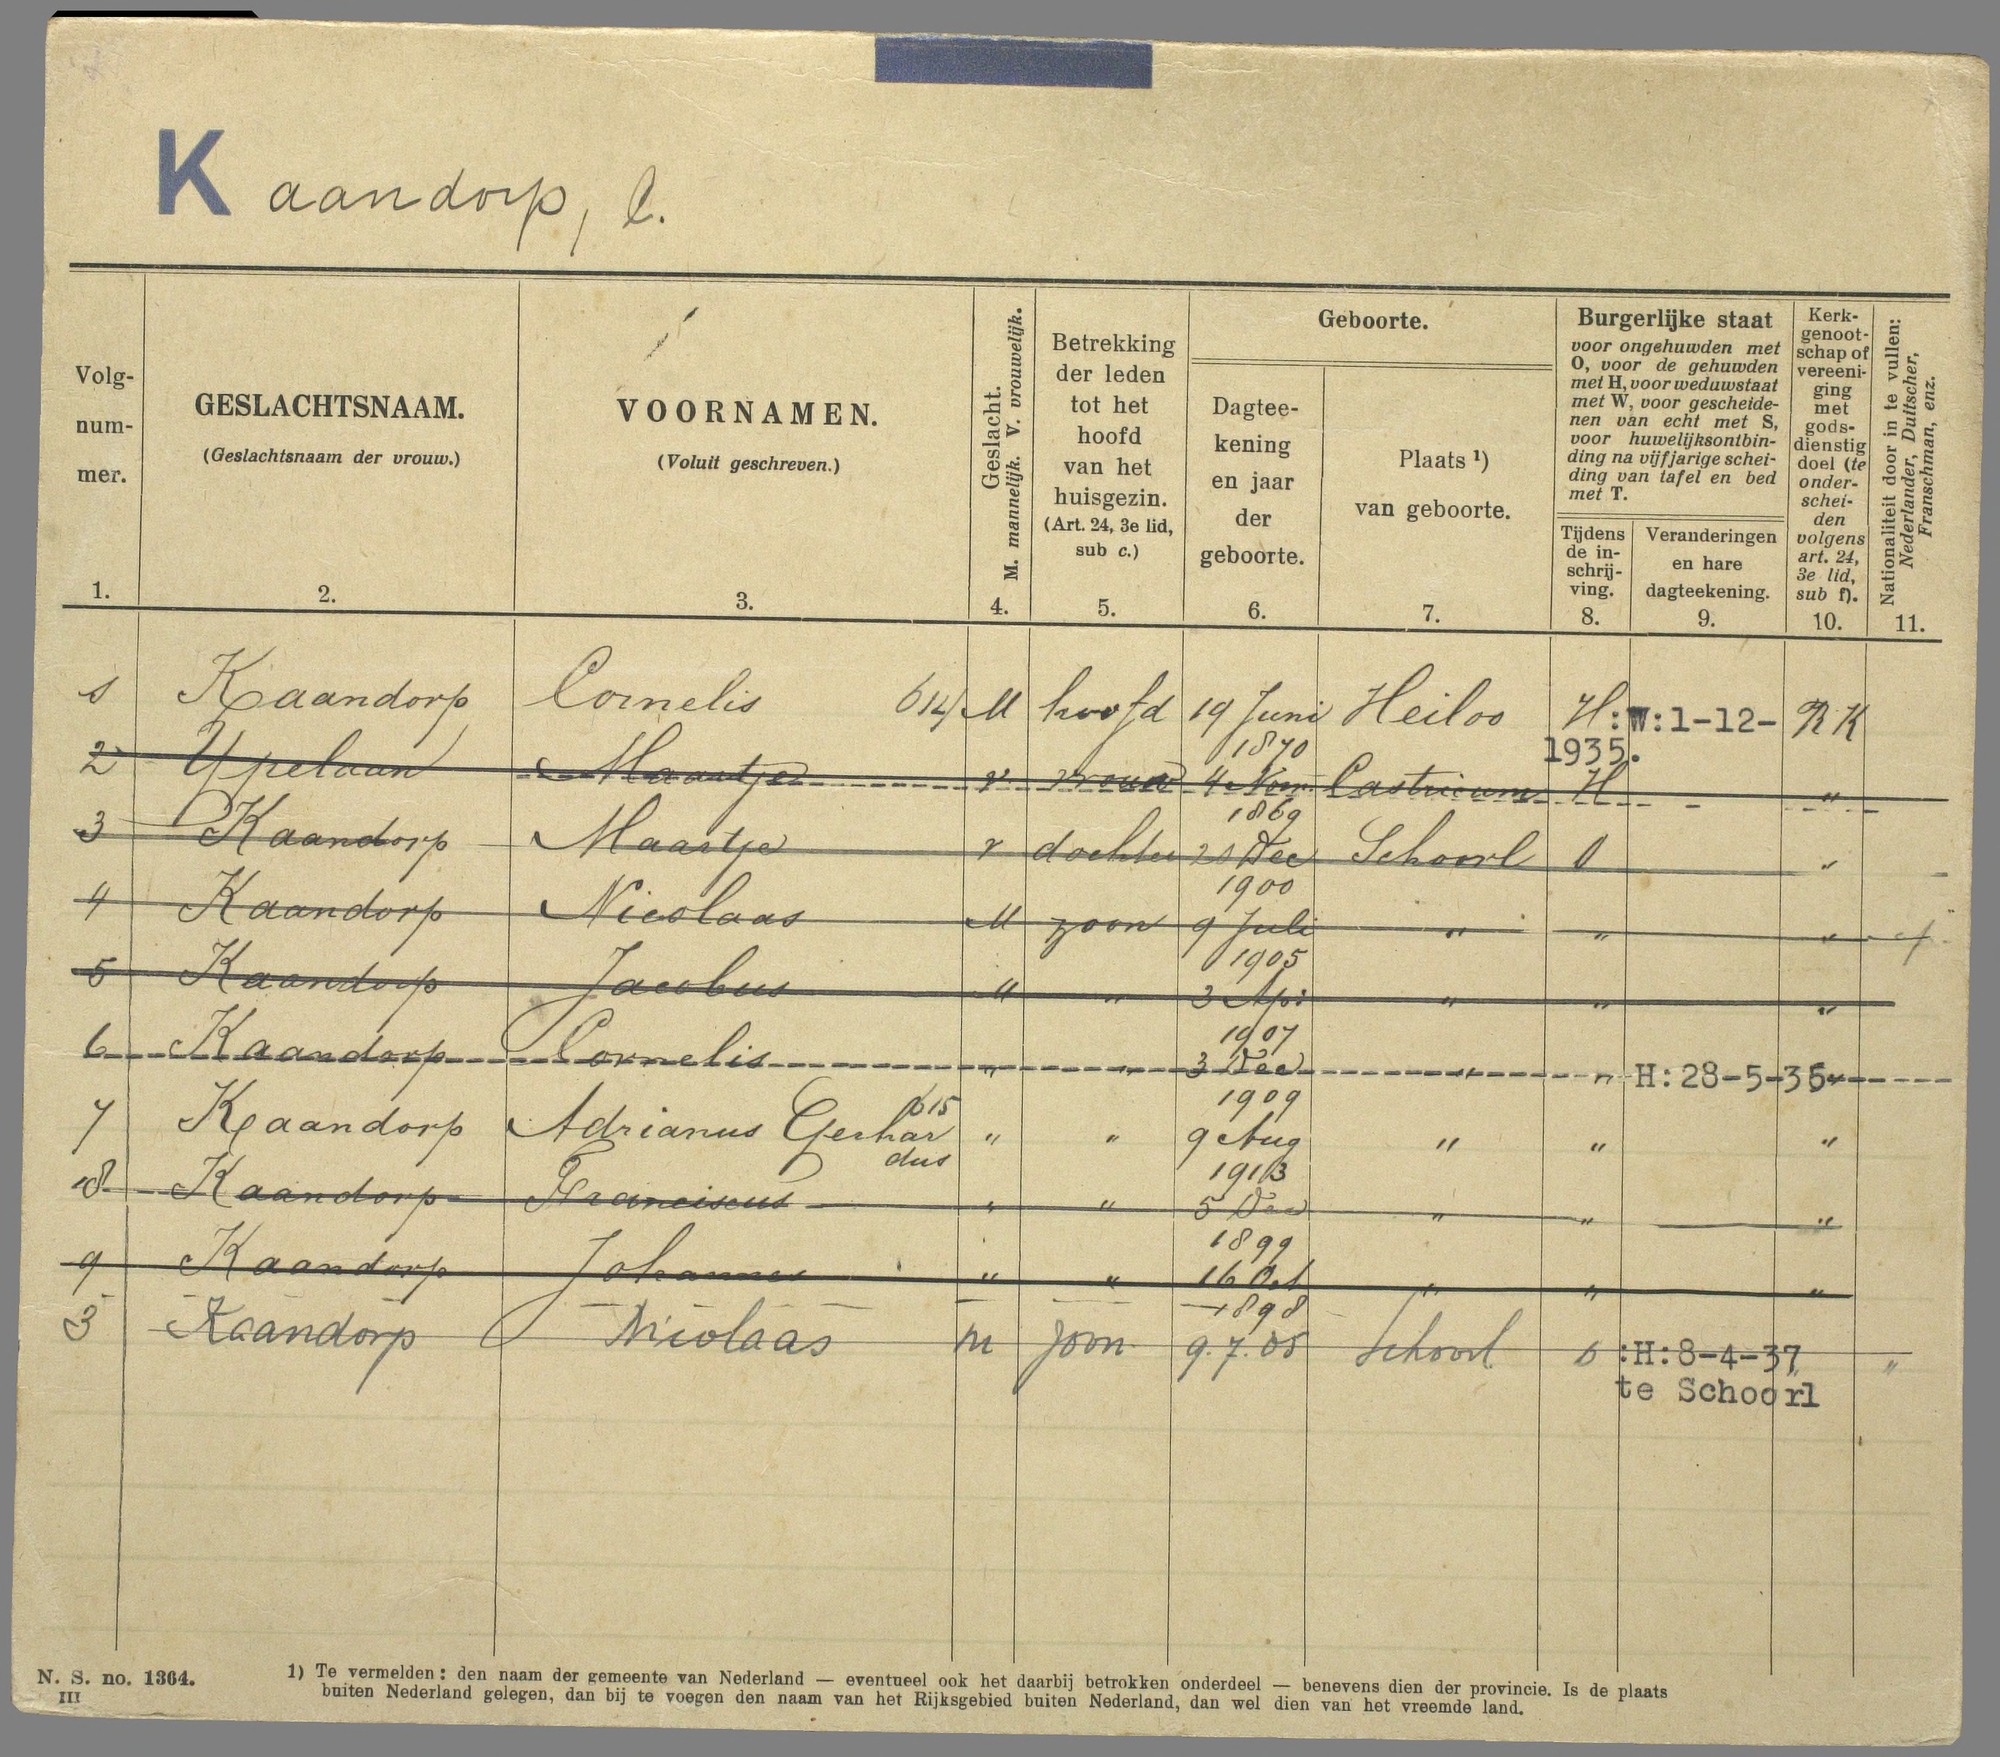 Kaandorp, C.
Volg-
num-
mer.
1.
GESLACHTSNAAM.
(Geslachtsnaam der vrouw.)
2.
VOORNAMEN.
(Voluit geschreven.)
3.
Geslacht.
M. mannelijk. V. vrouwelijk.
4.
Betrekking
der leden
tot het
hoofd
van het
huisgezin.
(Art. 24, 3e lid,
sub c.)
5.
Geboorte.
Dagtee-
kening
en jaar
der
geboorte.
6.
Plaats ¹)
van geboorte.
7.
Burgerlijke staat
voor ongehuwden met
O, voor de gehuwden
met H, voor weduwstaat
met W, voor gescheide-
nen van echt met S,
voor huwelijksontbin-
ding na vijfjarige schei-
ding van tafel en bed
met T.
Tijdens
de in-
schrij-
ving.
8.
Veranderingen
en hare
dagteekening.
9.
Kerk-
genoot-
schap of
vereeni-
ging
met
gods-
dienstig
doel (te
onder-
schei-
den
volgens
art. 24,
3e lid,
sub f).
10.
Nationaliteit door in te vullen:
Nederlander, Duitscher,
Franschman, enz.
11.
1 Kaandorp Cornelis 614 M hoofd 19 Juni Heiloo H :W:1-12- RK
1870 1935.
2 Ypelaan Maartje v vrouw 4 Nov. Castricum H "
1869
3 Kaandorp Maartje v dochter Dec Schoorl O "
1900
4 Kaandorp Nicolaas M zoon 9 Juli " " "
1905
5 Kaandorp Jacobus M " 3 Apr " " "
1907
6 Kaandorp Cornelis " " 3 Dec " " H:28-5-35 "
1909
7 Kaandorp Adrianus Gerhar 615 " " 9 Aug " " "
dus 1913
8 Kaandorp Franciscus " " 5 Dec " " "
1899
9 Kaandorp Johannes " " 16 Oct " " "
1898
3 Kaandorp Nicolaas m zoon 9.7.05 Schoorl O :H:8-4-37 "
te Schoorl
N. S. no. 1364.
III
1) Te vermelden: den naam der gemeente van Nederland — eventueel ook het daarbij betrokken onderdeel — benevens dien der provincie. Is de plaats
buiten Nederland gelegen, dan bij te voegen den naam van het Rijksgebied buiten Nederland, dan wel dien van het vreemde land.